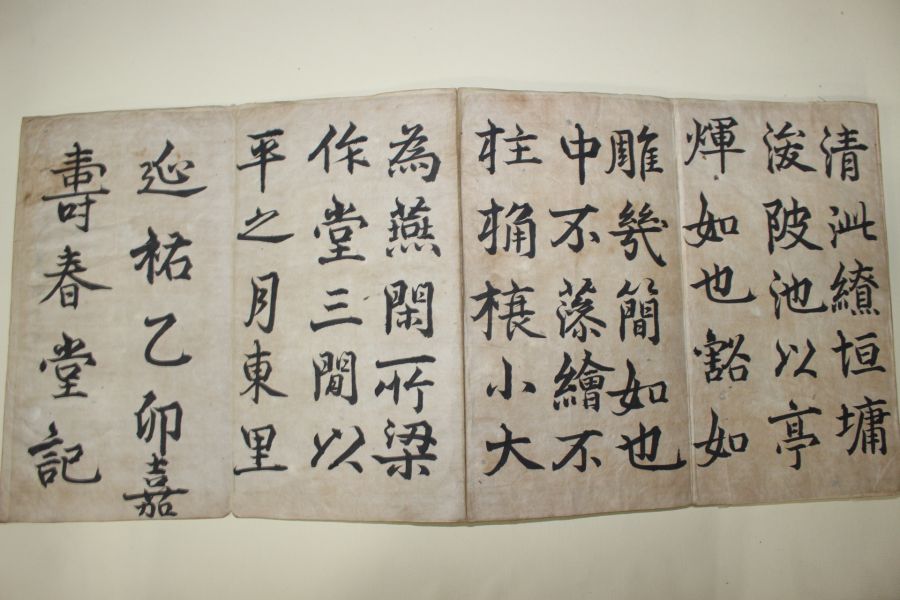 壽春堂記
延祐乙卯嘉
平之月東里
作堂三間以
為燕閑所梁
柱桷榱小大
中不藻繪不
雕幾簡如也
煇如也豁如
浚陂池以亭
清泚繚垣墉